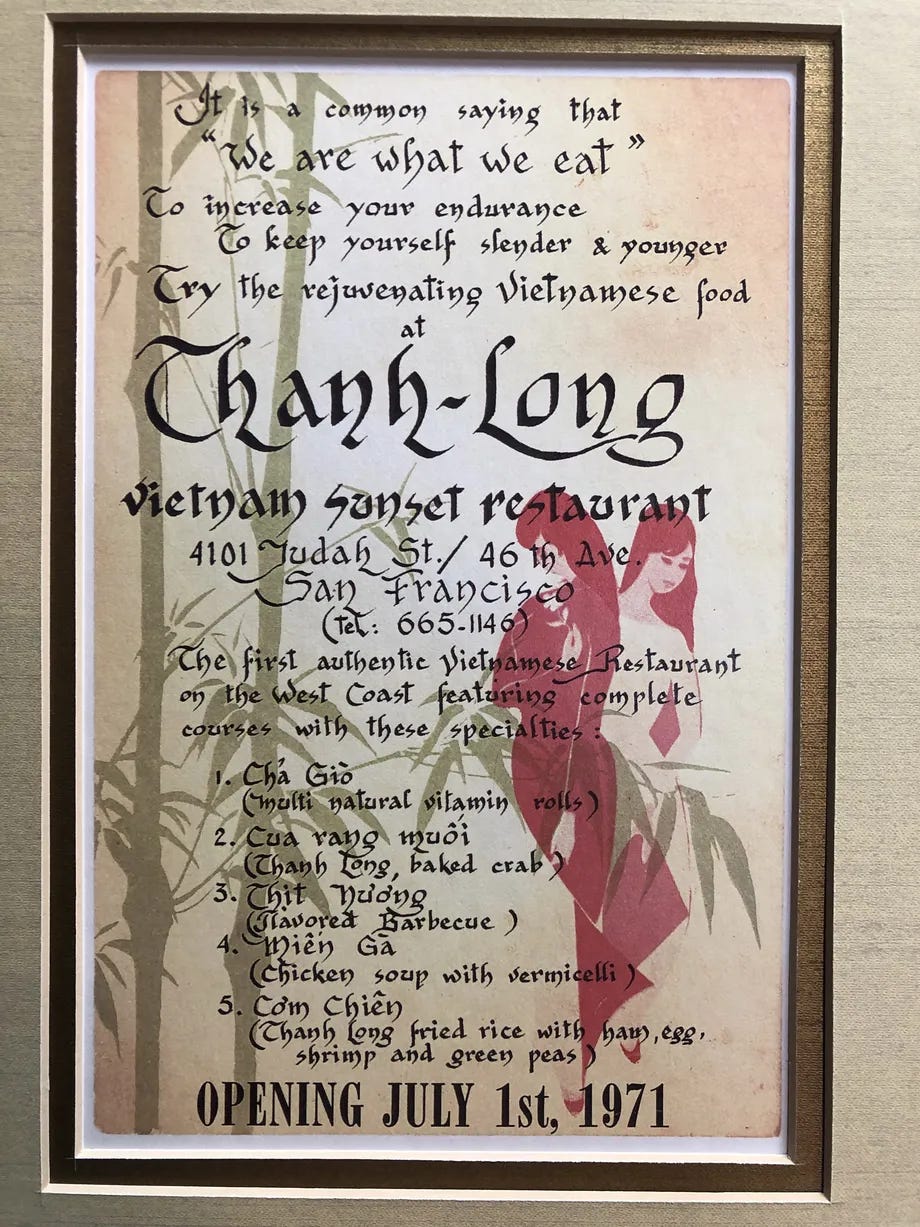 It is a common saying that
"We are what we eat"
To increase your endurance
To keep yourself slender & younger
Try the rejuvenating Vietnamese food
at
Thanh-Long
Vietnam Sunset restaurant
4101 Judah St./ 46th Ave.
San Francisco
(tel: 665-1146)
The first authentic Vietnamese Restaurant
on the West Coast featuring complete
courses with these specialties:
1. Chả Giò
(multi natural vitamin rolls)
2. Cua rang muối
(Thanh Long, baked crab)
3. Thịt Nướng
(Flavored Barbecue)
4. Miến Gà
(Chicken soup with vermicelli)
5. Cơm Chiên
(Thanh Long fried rice with ham, egg,
shrimp and green peas)
OPENING JULY 1st, 1971